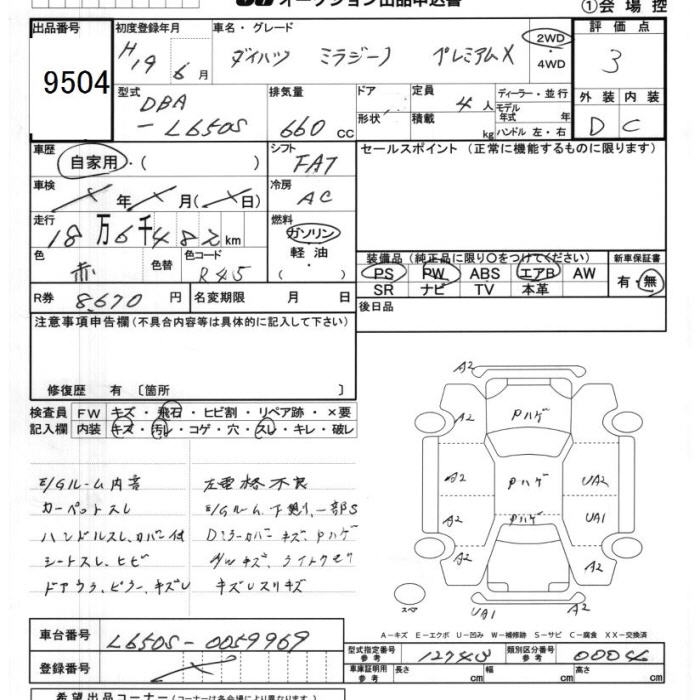 オークション出品申込書 ①会場控
出品番号 初度登録年月 車名・グレード 2WD・4WD 評価点
9504 H19 6月 ダイハツ ミラジーノ プレミアムX 3
型式 DBA-L650S 排気量 660 CC ドア 形状 定員 4人 積載 kg ディーラー・並行 モデル年式 年 ハンドル 左・右 外装 内装 D C
車歴 自家用・( ) シフト FAT セールスポイント(正常に機能するものに限ります)
車検 年 月( 日) 冷房 AC
走行 18万6千482km 燃料 ガソリン・軽油・( )
色 赤 色替 色コード R45
装備品(純正品に限り〇をつけてください) 新車保証書
PS PW ABS エアB AW 有・無
SR ナビ TV 本革
R券 8,670円 名変期限 月 日 後日品
注意事項申告欄(不具合内容等は具体的に記入して下さい)
修復歴 有〔箇所 〕
検査員 FW キズ・飛石・ヒビ割・リペア跡・×要
記入欄 内装 キズ・汚レ・コゲ・穴・スレ・キレ・破レ
E/Gルーム内音 左電格不良
カーペットスレ E/Gルーム、下廻り、一部S
ハンドルスレ、カバー付 Dミラーカバーキズ、Pハゲ
シートスレ、ヒビ A/Wキズ、ライトクモリ
ドアウラ、ピラー、キズレ キズレスリキズ
A2
A2 Pハゲ
A2 Pハゲ UA2
A2 Pハゲ UA1
A2 A2
スペア UA1 A2
A-キズ E-エクボ U-凹み W-補修跡 S-サビ C-腐食 XX-交換済
車台番号 L650S-0059969 型式指定番号 参考 12740 類別区分番号 参考 0004
登録番号 車庫証明用 参考 長さ cm 幅 cm 高さ cm
希望出品コーナー(コーナーは各会場により異なります。)